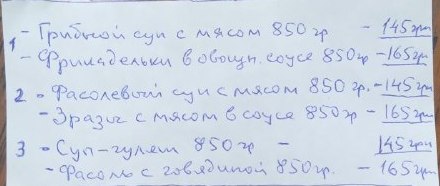 1 - Грибной суп с мясом 850 гр - 145 грн
- Фрикадельки в овощн. соусе 850 гр - 165 грн
2 - Фасолевый суп с мясом 850 гр. - 145 грн
- Зразы с мясом в соусе 850 гр - 165 грн
3 - Суп-гуляш 850 гр - 145 грн
- Фасоль с говядиной 850 гр. - 165 грн